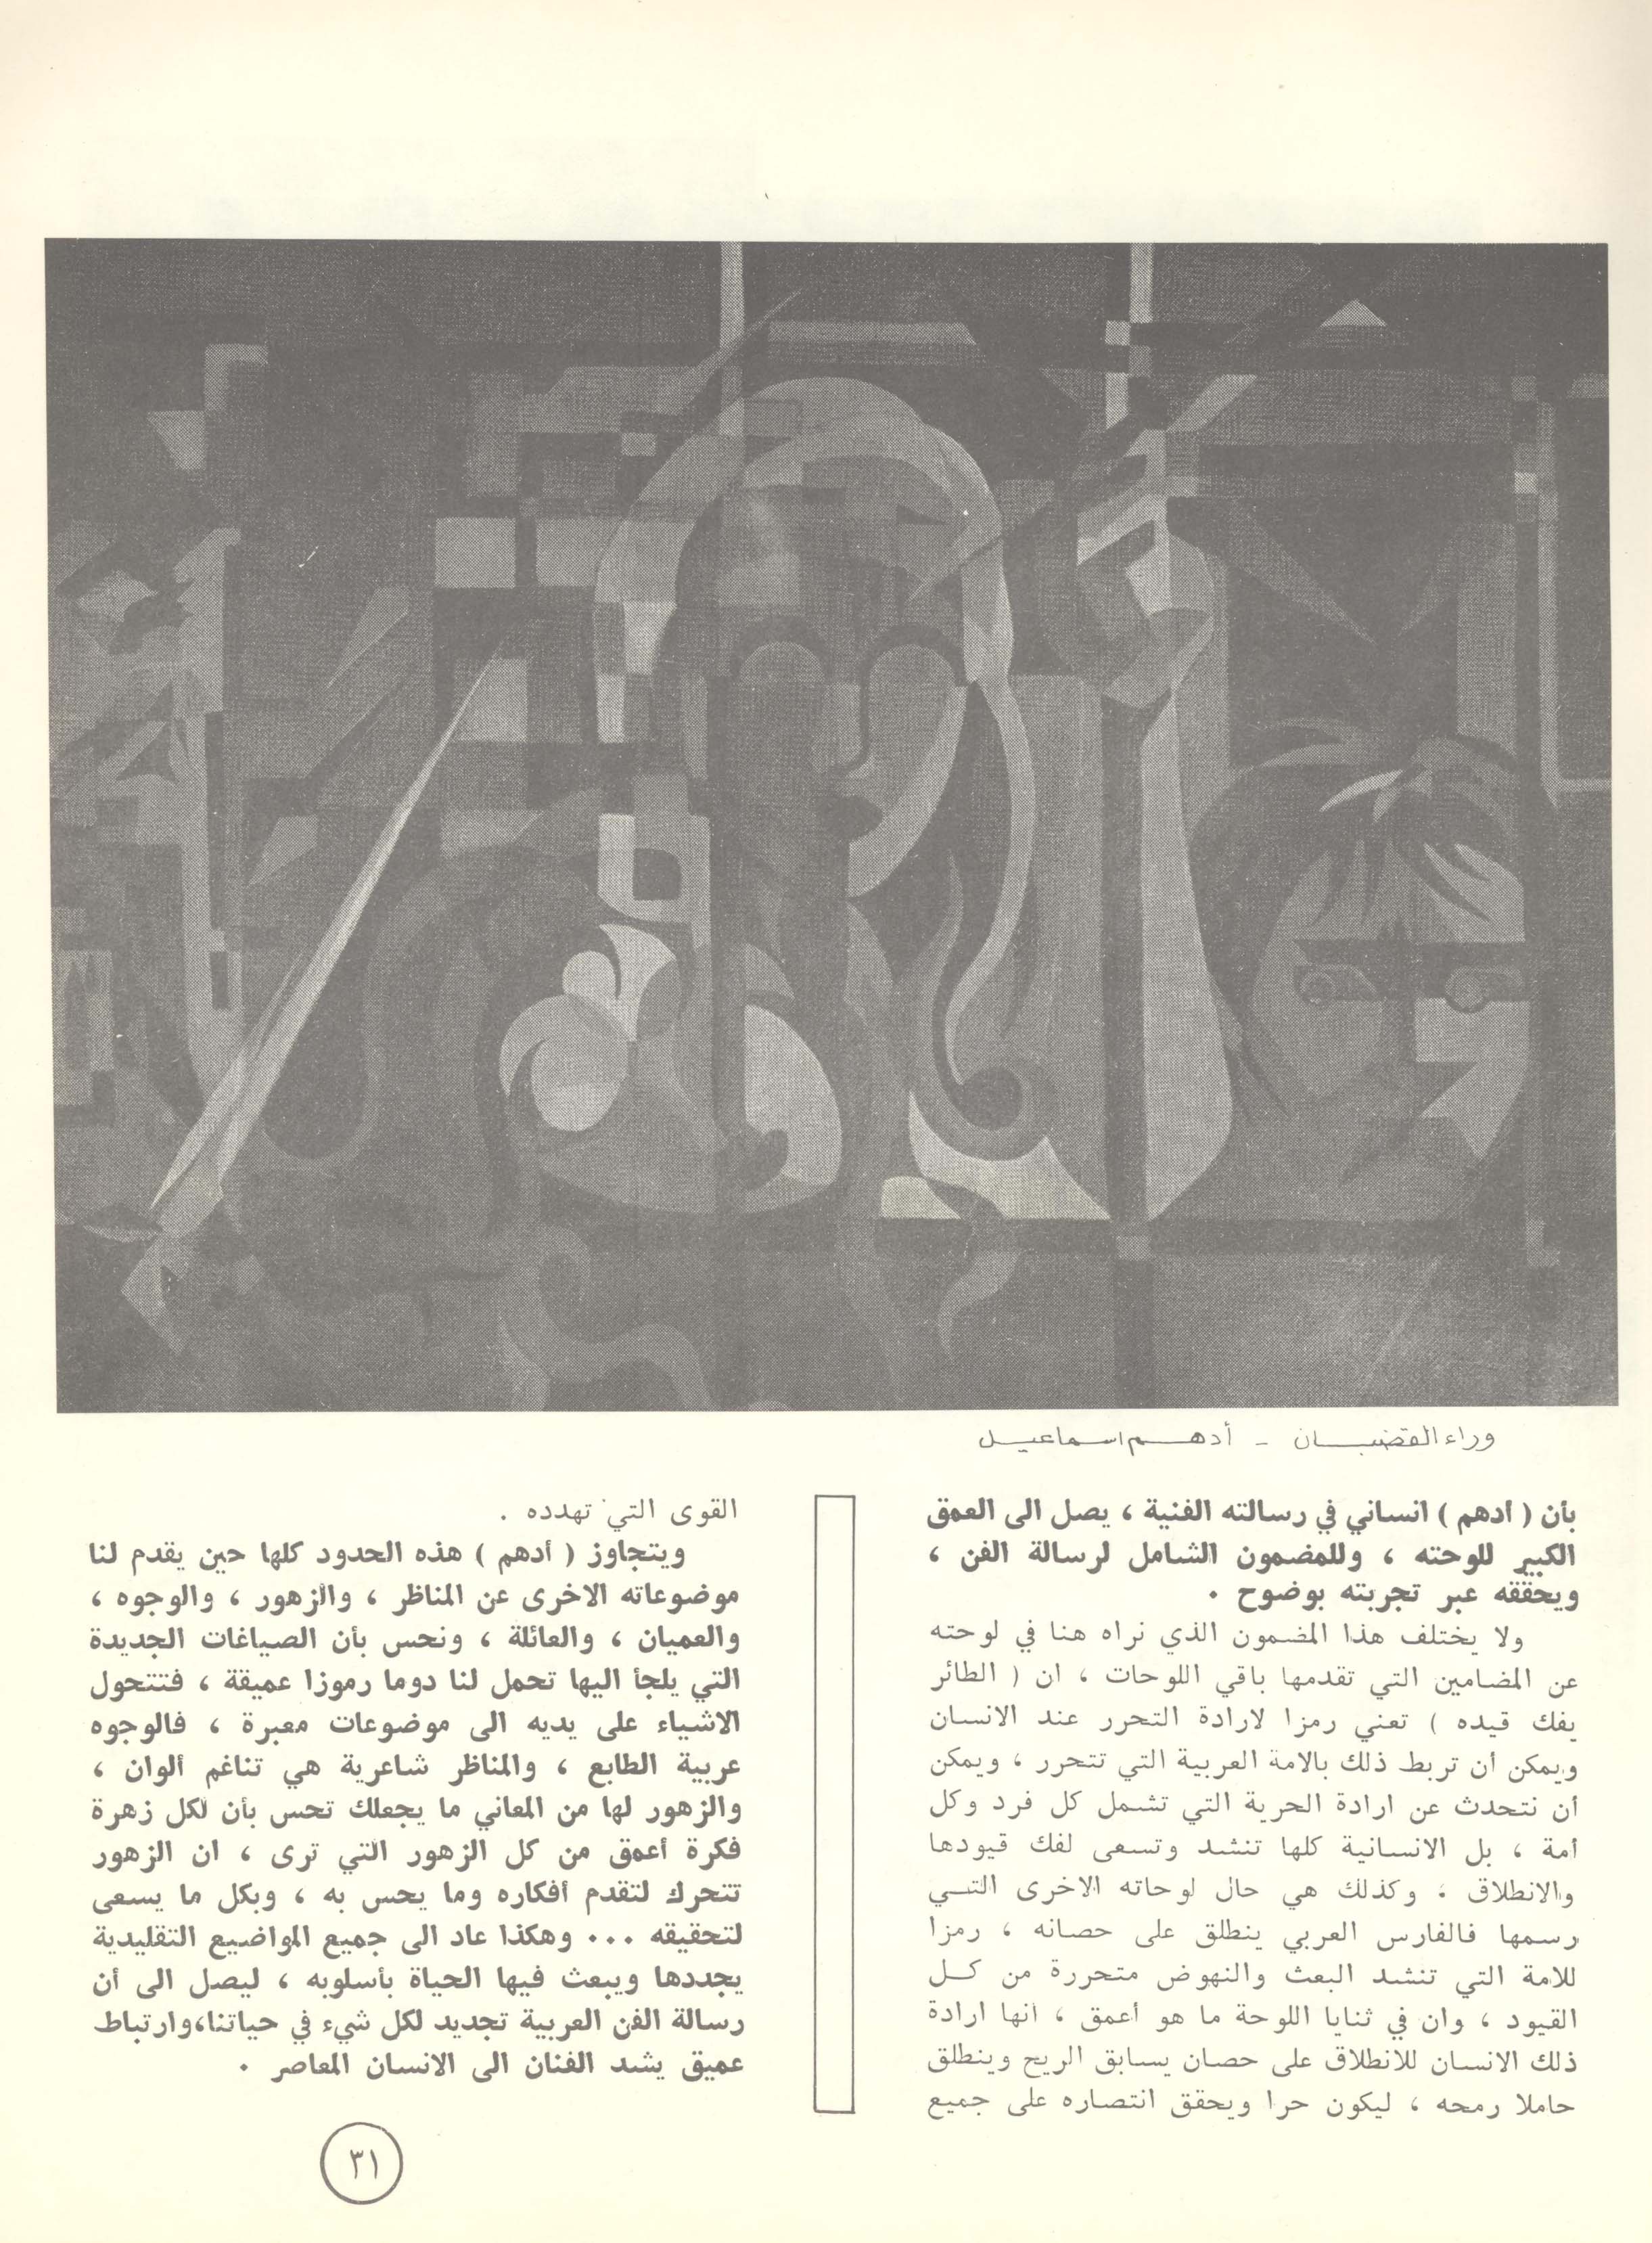 وراء القضبان - أدهم اسماعيل
بأن ( أدهم ) انساني في رسالته الفنية ، يصل الى العمق
الكبير للوحته ، وللمضمون الشامل لرسالة الفن ،
ويحققه عبر تجربته بوضوح .
ولا يختلف هذا المضمون الذي نراه هنا في لوحته
عن المضامين التي تقدمها باقي اللوحات ، ان ( الطائر
يفك قيده ) تعني رمزا لارادة التحرر عند الانسان
ويمكن أن تربط ذلك بالامة العربية التي تتحرر ، ويمكن
أن نتحدث عن ارادة الحرية التي تشمل كل فرد وكل
أمة ، بل الانسانية كلها تنشد وتسعى لفك قيودها
والانطلاق . وكذلك هي حال لوحاته الاخرى التي
رسمها فالفارس العربي ينطلق على حصانه ، رمزا
للامة التي تنشد البعث والنهوض متحررة من كل
القيود ، وان في ثنايا اللوحة ما هو أعمق ، انها ارادة
ذلك الانسان للانطلاق على حصان يسابق الريح وينطلق
حاملا رمحه ، ليكون حرا ويحقق انتصاره على جميع
القوى التي تهدده .
ويتجاوز ( أدهم ) هذه الحدود كلها حين يقدم لنا
موضوعاته الاخرى عن المناظر ، والزهور ، والوجوه ،
والعميان ، والعائلة ، ونحس بأن الصياغات الجديدة
التي يلجأ اليها تحمل لنا دوما رموزا عميقة ، فتتحول
الاشياء على يديه الى موضوعات معبرة ، فالوجوه
عربية الطابع ، والمناظر شاعرية هي تناغم ألوان ،
والزهور لها من المعاني ما يجعلك تحس بأن لكل زهرة
فكرة أعمق من كل الزهور التي ترى ، ان الزهور
تتحرك لتقدم أفكاره وما يحس به ، وبكل ما يسعى
لتحقيقه ... وهكذا عاد الى جميع المواضيع التقليدية
يجددها ويبعث فيها الحياة بأسلوبه ، ليصل الى أن
رسالة الفن العربية تجديد لكل شيء في حياتنا،وارتباط
عميق يشد الفنان الى الانسان المعاصر .
٣١